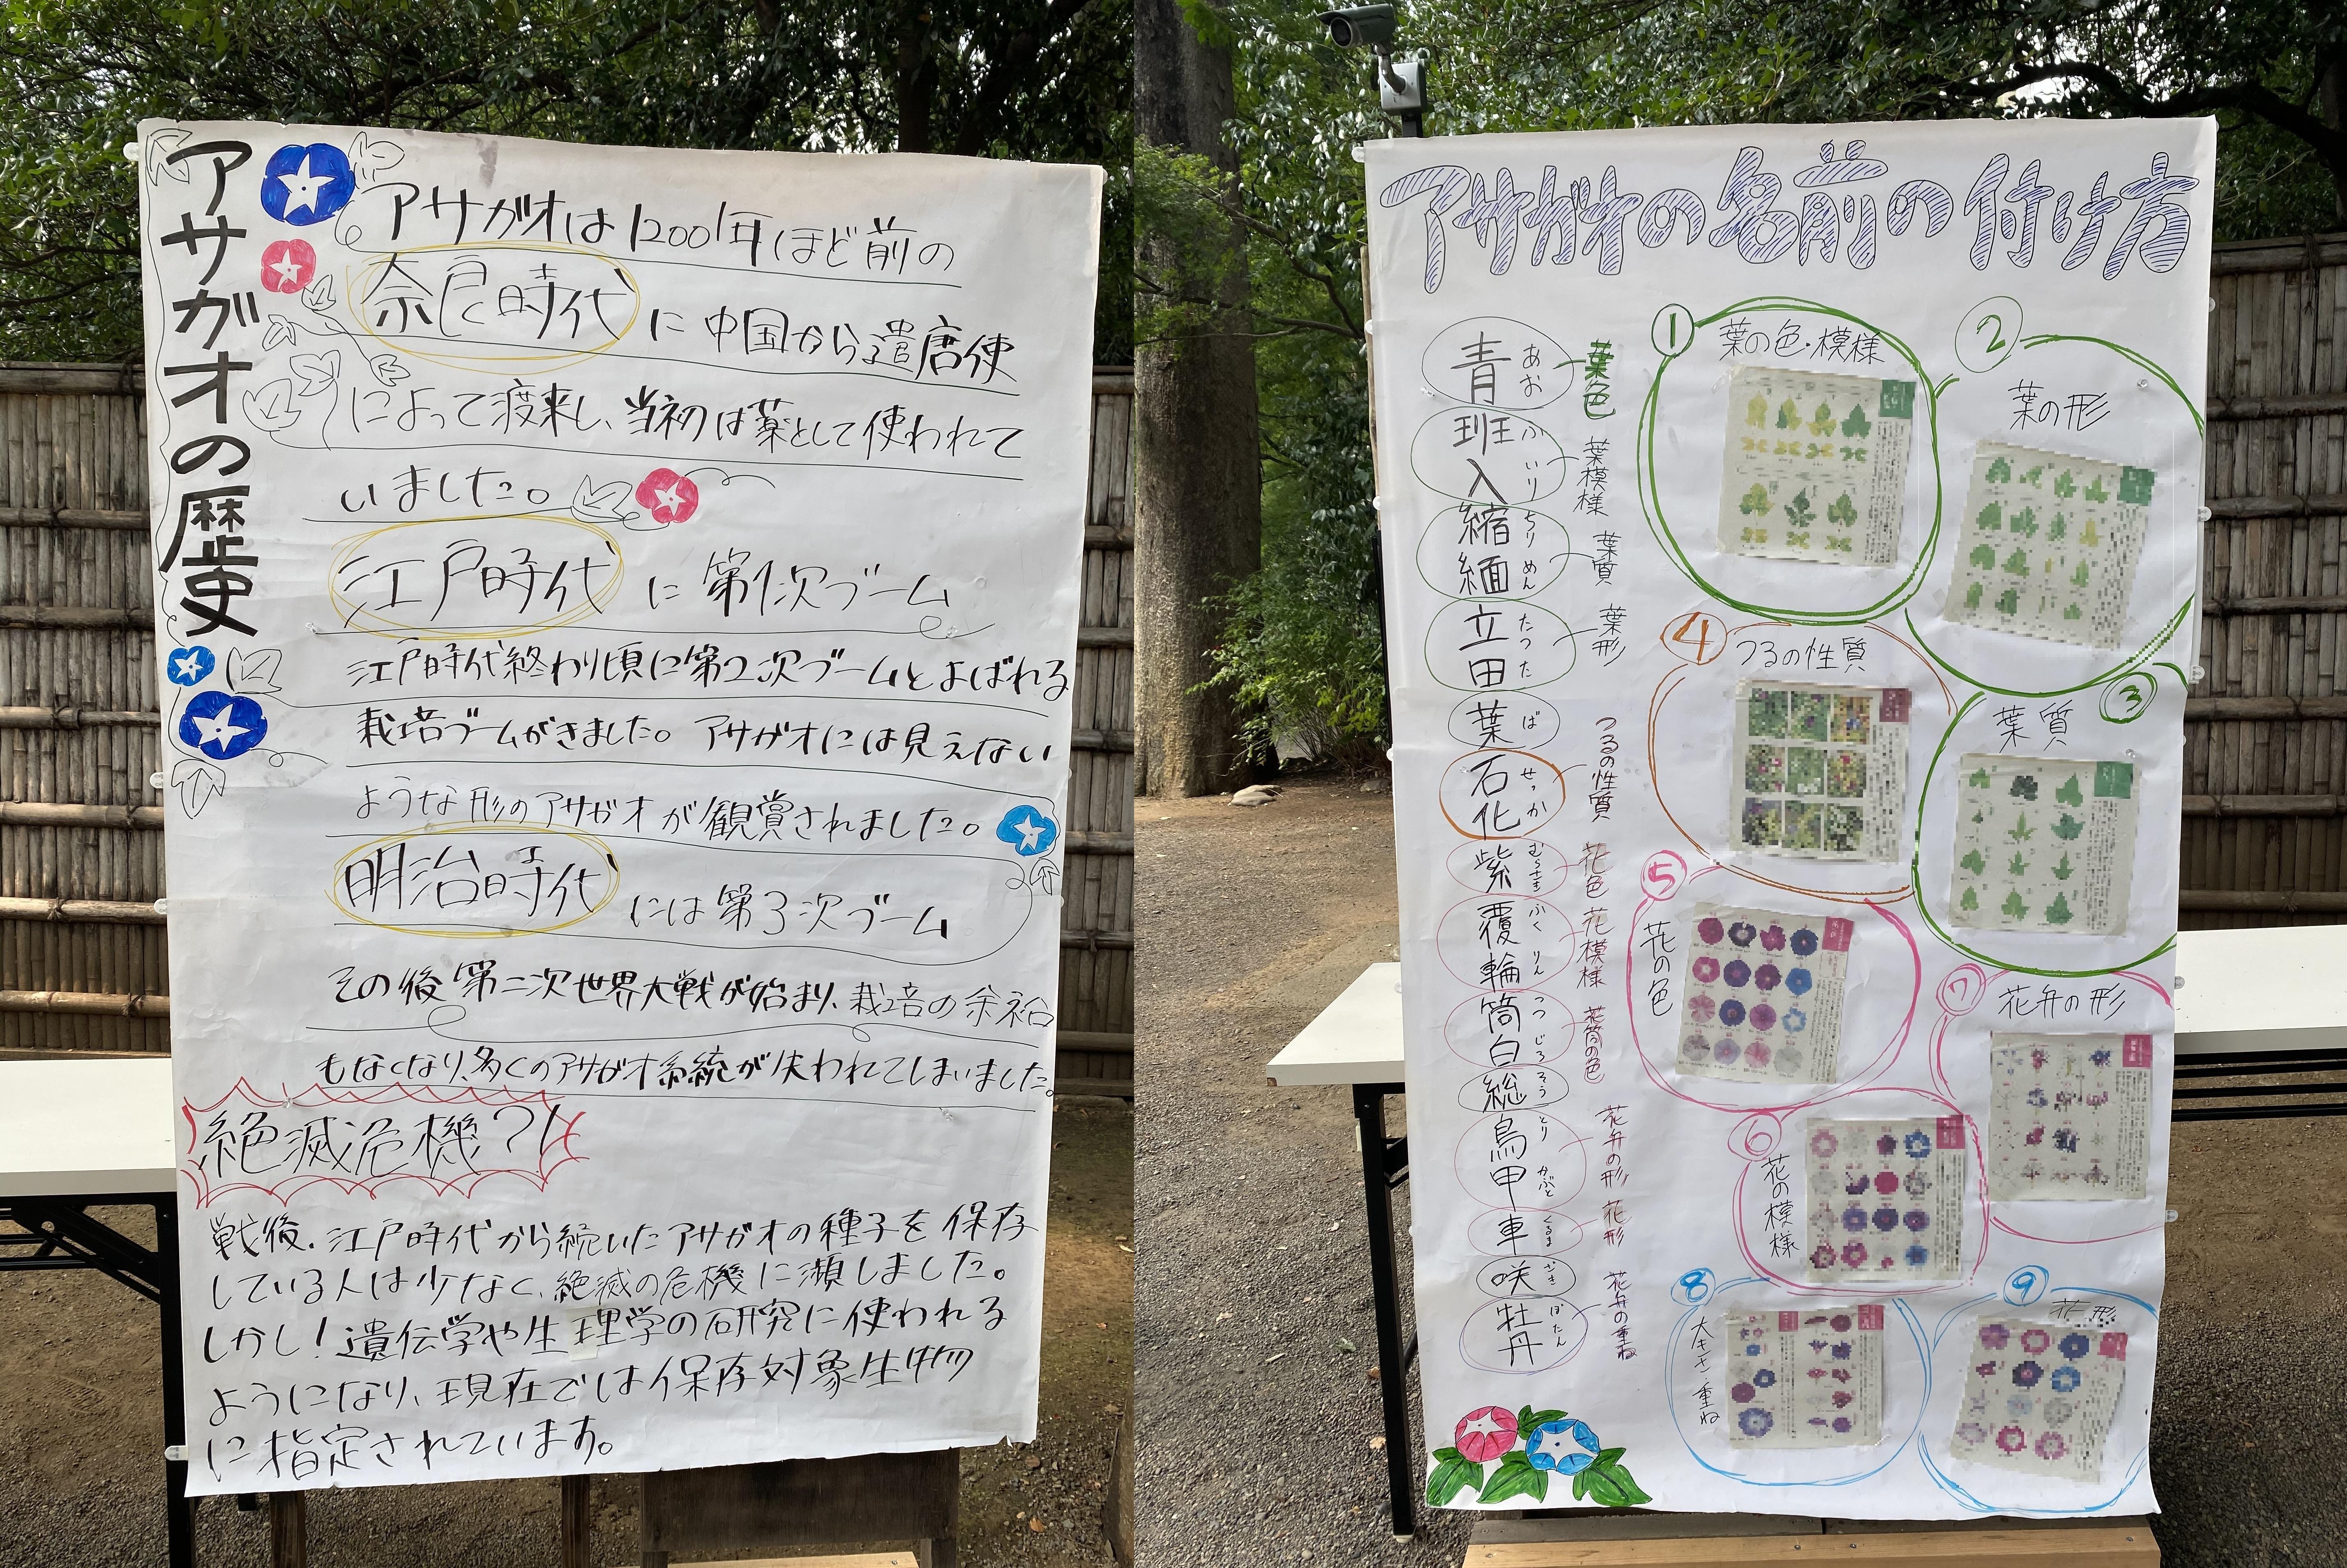 アサガオの歴史
アサガオは1200年ほど前の
奈良時代に中国から遣唐使
によって渡来し、当初は薬として使われて
いました。
江戸時代に第1次ブーム
江戸時代終わり頃に第2次ブームとよばれる
栽培ブームがきました。アサガオには見えない
ような形のアサガオが観賞されました。
明治時代には第3次ブーム
その後第二次世界大戦が始まり、栽培の余裕
もなくなり、多くのアサガオ系統が失われてしまいました。
絶滅危機?!
戦後、江戸時代から続いたアサガオの種子を保存
している人は少なく、絶滅の危機に瀕しました。
しかし!遺伝学や生理学の研究に使われる
ようになり、現在では保存対象生物
に指定されています。
アサガオの名前の付け方
青 あお 葉色
班入 ふいり 葉模様
縮緬 ちりめん 葉質
立田 たつた 葉形
葉 ば
石化 せっか つるの性質
紫 むらさき 花色
覆輪 ふくりん 花模様
筒白 つつじろ 花筒の色
総 そう
鳥甲 とりかぶと 花弁の形
車 くるま 花形
咲 ざき
牡丹 ぼたん 花弁の重ね
① 葉の色・模様
② 葉の形
③ 葉質
④ つるの性質
⑤ 花の色
⑥ 花の模様
⑦ 花弁の形
⑧ 大きさ・重ね
⑨ 花形